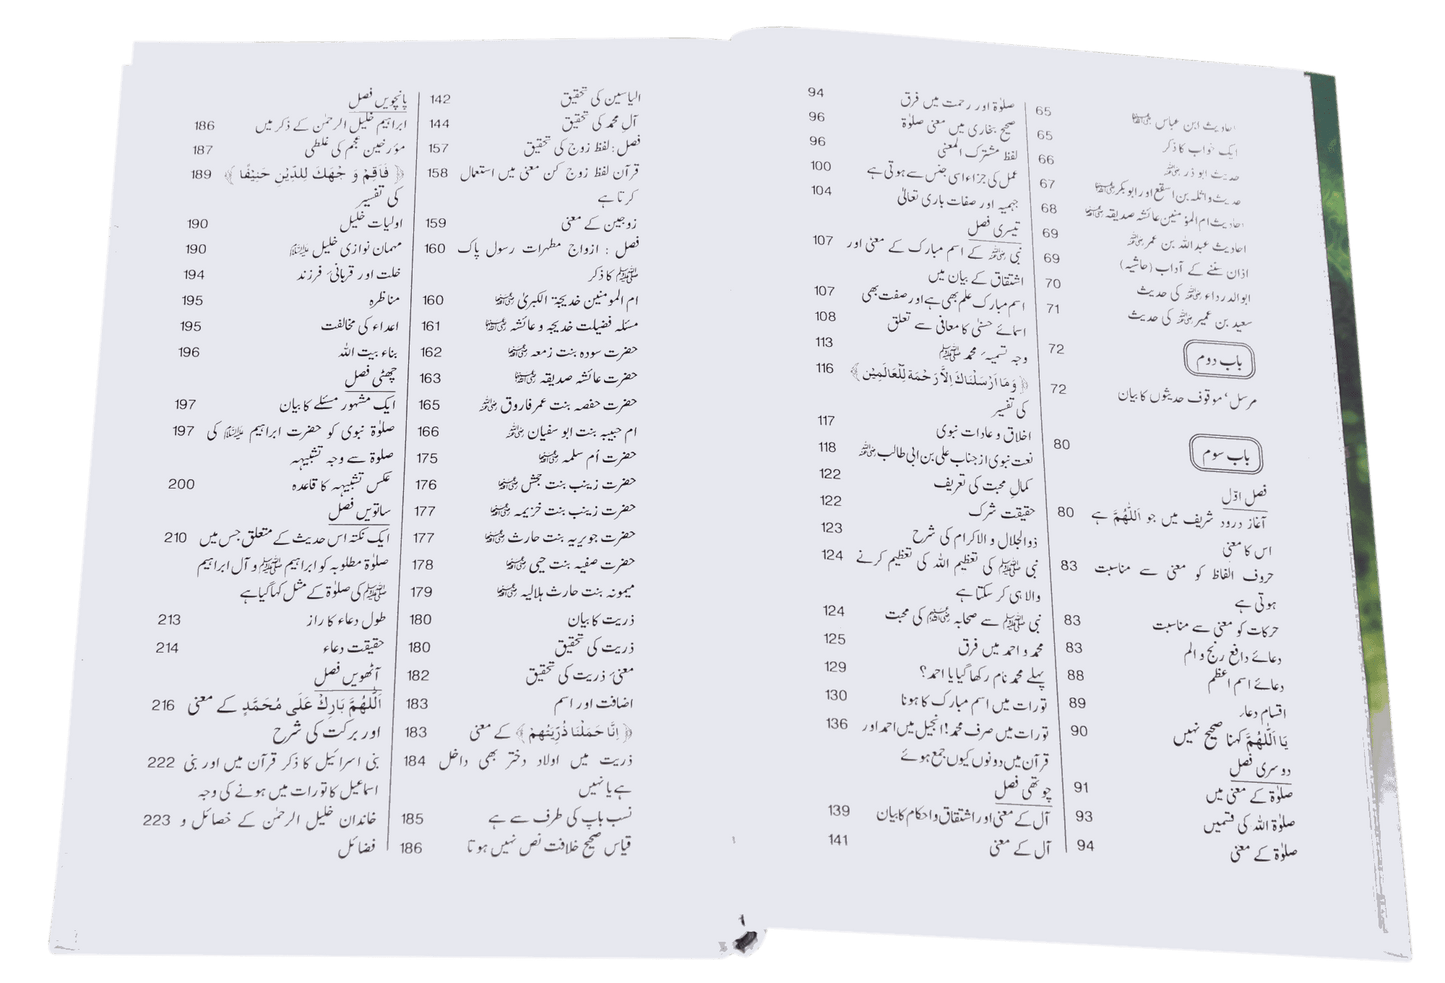 احادیث ابن عباس ﷺ 65
ایک خواب کا ذکر 65
حدیث ابو ذر ﷺ 66
حدیث واثلہ بن اسقع اور ابو بکر ﷺ 67
احادیث ام المؤمنین عائشہ صدیقہ ﷺ 68
احادیث عبداللہ بن عمر ﷺ 69
اذان سننے کے آداب (حاشیہ) 69
ابو الدرداء ﷺ کی حدیث 70
سعید بن عمیر ﷺ کی حدیث 71
باب دوم 72
مرسل ' موقوف حدیثوں کا بیان 72
باب سوم 80
فصل اوّل
آغاز درود شریف میں جو اَللّٰھُمَّ ہے 80
اس کا معنی
حروف الفاظ کو معنی سے مناسبت 83
ہوتی ہے
حرکات کو معنی سے مناسبت 83
دعائے دافع رنج و الم 83
دعائے اسم اعظم 88
اقسام دعار 89
یَا اَللّٰھُمَّ کہنا صحیح نہیں 90
دوسری فصل
صلوٰۃ کے معنی میں 91
صلوٰۃ اللہ کی قسمیں 93
صلوٰۃ کے معنی 94
صلوٰۃ اور رحمت میں فرق 94
صحیح بخاری میں معنی صلوٰۃ 96
لفظ مشترک المعنی 96
عمل کی جزاء اسی جنس سے ہوتی ہے 100
جہمیہ اور صفات باری تعالیٰ 104
تیسری فصل
نبی ﷺ کے اسم مبارک کے معنی اور 107
اشتقاق کے بیان میں
اسم مبارک علم بھی ہے اور صفت بھی 107
اسمائے حسنٰی کا معانی سے تعلق 108
وجہ تسمیہ محمد ﷺ 113
﴿وَمَا اَرْسَلْنَاكَ اِلاَّ رَحْمَةً لِّلْعَالَمِيْنَ﴾ 116
کی تفسیر
اخلاق و عادات نبوی 117
نعت نبوی از جناب علی بن ابی طالب ﷺ 118
کمالِ محبت کی تعریف 122
حقیقت شرک 122
ذوالجلال و الاکرام کی شرح 123
نبی ﷺ کی تعظیم اللہ کی تعظیم کرنے 124
والا ہی کر سکتا ہے
نبی ﷺ سے صحابہ ﷺ کی محبت 124
محمد و احمد میں فرق 125
پہلے محمد نام رکھا گیا یا احمد؟ 129
تورات میں اسم مبارک کا ہونا 130
تورات میں صرف محمد! انجیل میں احمد اور 136
قرآن میں دونوں کیوں جمع ہوئے
چوتھی فصل
آل کے معنی اور اشتقاق و احکام کا بیان 139
آل کے معنی 141
الیاسین کی تحقیق 142
آلِ محمد کی تحقیق 144
فصل: لفظ زوج کی تحقیق 157
قرآن لفظ زوج کن معنی میں استعمال 158
کرتا ہے
زوجین کے معنی 159
فصل : ازواج مطہرات رسول پاک 160
ﷺ کا ذکر
ام المومنین خدیجۃ الکبریٰ ﷺ 160
مسئلہ فضیلت خدیجہ و عائشہ ﷺ 161
حضرت سودہ بنت زمعہ ﷺ 162
حضرت عائشہ صدیقہ ﷺ 163
حضرت حفصہ بنت عمر فاروق ﷺ 165
ام حبیبہ بنت ابو سفیان ﷺ 166
حضرت اُم سلمہ ﷺ 175
حضرت زینب بنت جحش ﷺ 176
حضرت زینب بنت خزیمہ ﷺ 177
حضرت جویریہ بنت حارث ﷺ 177
حضرت صفیہ بنت حیی ﷺ 178
میمونہ بنت حارث ہلالیہ ﷺ 179
ذریت کا بیان 180
ذریت کی تحقیق 180
معنیٰ ذریت کی تحقیق 182
اضافت اور اسم 183
﴿اِنَّا حَمَلْنَا ذُرِّيَّتَهُمْ﴾ کے معنی 183
ذریت میں اولاد دختر بھی داخل 184
ہے یا نہیں
نسب باپ کی طرف سے ہے 185
قیاس صحیح خلافت نص نہیں ہوتا 186
پانچویں فصل
ابراہیم خلیل الرحمٰن کے ذکر میں 186
مؤرخین عجم کی غلطی 187
﴿فَاَقِمْ وَجْهَكَ لِلدِّيْنِ حَنِيْفًا﴾ 189
کی تفسیر
اولیات خلیل 190
مہمان نوازی خلیل ﷺ 190
خلت اور قربانیٔ فرزند 194
مناظرہ 195
اعداء کی مخالفت 195
بناء بیت اللہ 196
چھٹی فصل
ایک مشہور مسئلے کا بیان 197
صلوٰۃ نبوی کو حضرت ابراہیم ﷺ کی 197
صلوٰۃ سے وجہ تشبیہہ
عکس تشبیہہ کا قاعدہ 200
ساتویں فصل
ایک نکتہ اس حدیث کے متعلق جس میں 210
صلوٰۃ مطلوبہ کو ابراہیم ﷺ و آل ابراہیم
ﷺ کی صلوٰۃ کے مثل کہا گیا ہے
طول دعاء کا راز 213
حقیقت دعاء 214
آٹھویں فصل
اَللّٰهُمَّ بَارِكْ عَلَى مُحَمَّدٍ کے معنی 216
اور برکت کی شرح
بنی اسرائیل کا ذکر قرآن میں اور بنی 222
اسماعیل کا تورات میں ہونے کی وجہ
خاندان خلیل الرحمٰن کے خصائل و 223
فضائل